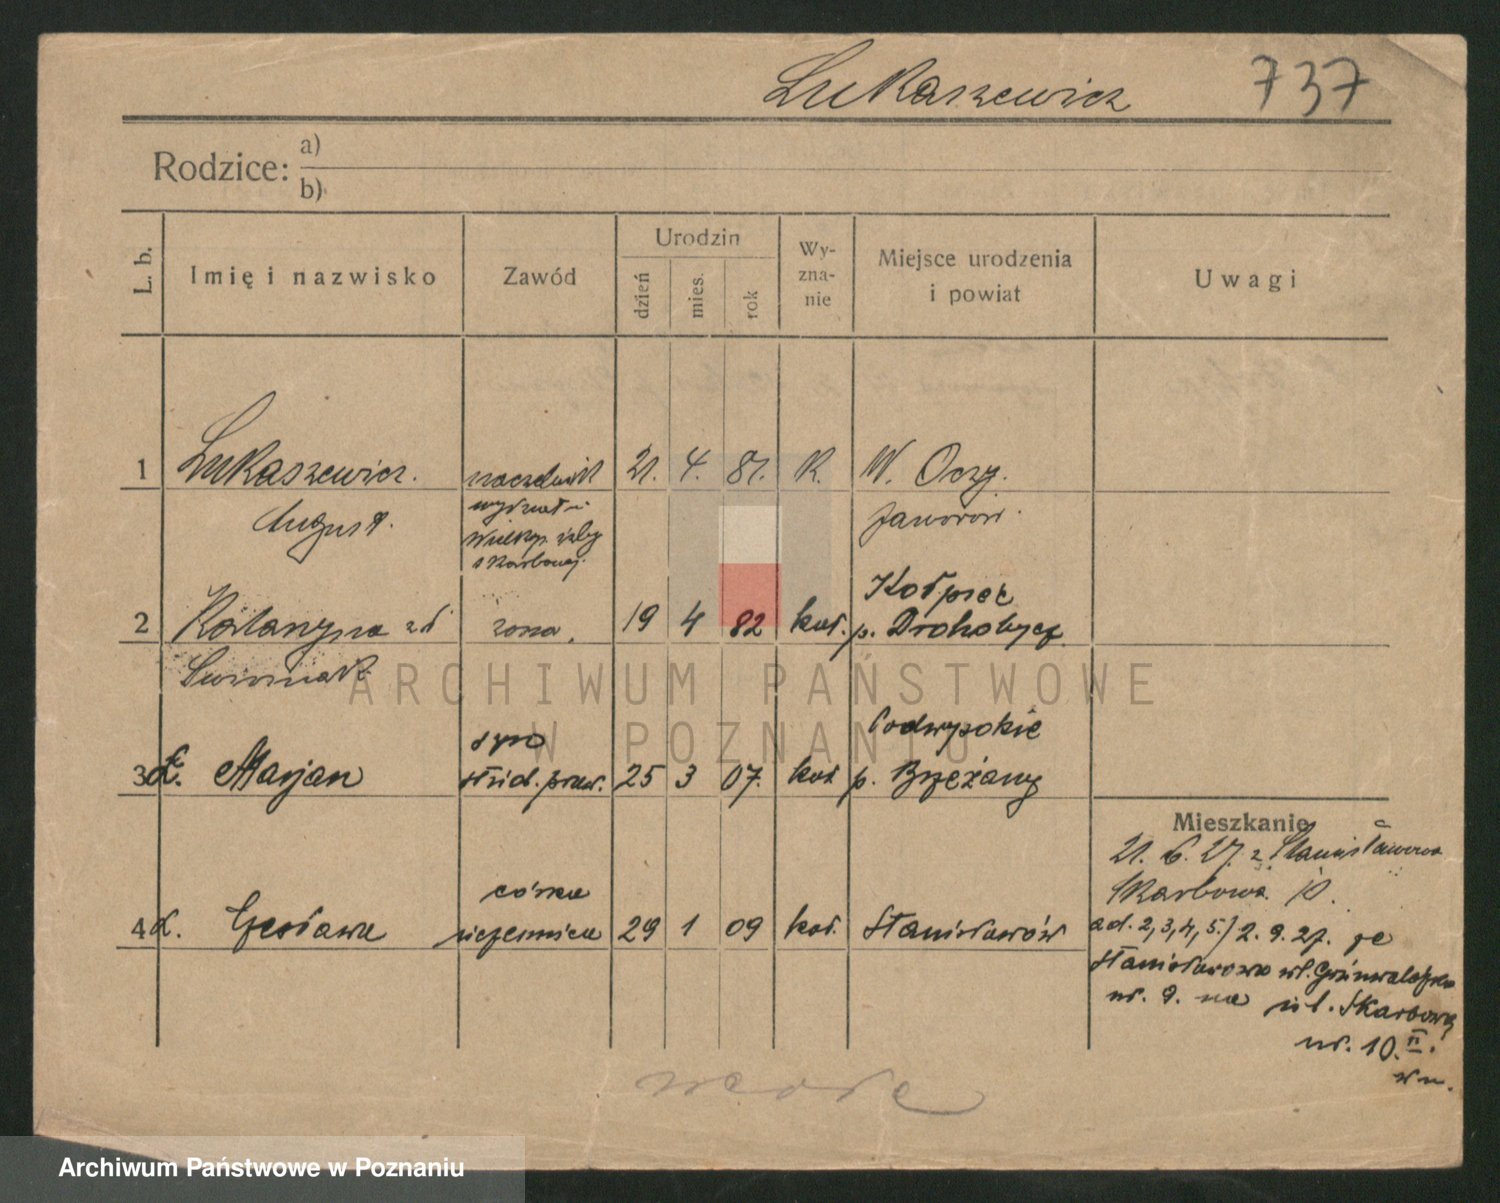 Łukaszewicz 737
Rodzice: a)
b)
L. b. Imię i nazwisko Zawód Urodzin dzień mies. rok Wy-zna-nie Miejsce urodzenia i powiat Uwagi
1 Łukaszewicz. naczelnik 21. 4. 81. K. W. Oczy.
August. Wielkp. Izby Jaworów.
skarbowej.
Kołpiec
2 Katarzyna zd żona. 19 4 82 kat. p. Drohobycz.
ARCHIWUM PAŃSTWOWE
W POZNANIU
syn Podwysokie
3 Ł. Marjan stud. praw. 25 3 07. kat p. Brzeżany
Mieszkanie
21. 6. 27. z Stanisławowa
córka Skarbowa 10.
4 Ł. Czesława uczennica 29 1 09 kat. Stanisławów ad. 2, 3, 4, 5.) 2. 9. 27. ze
Stanisławowa ul. Grunwaldzka
nr. 9. na ul. Skarbową
nr. 10. II.
Archiwum Państwowe w Poznaniu